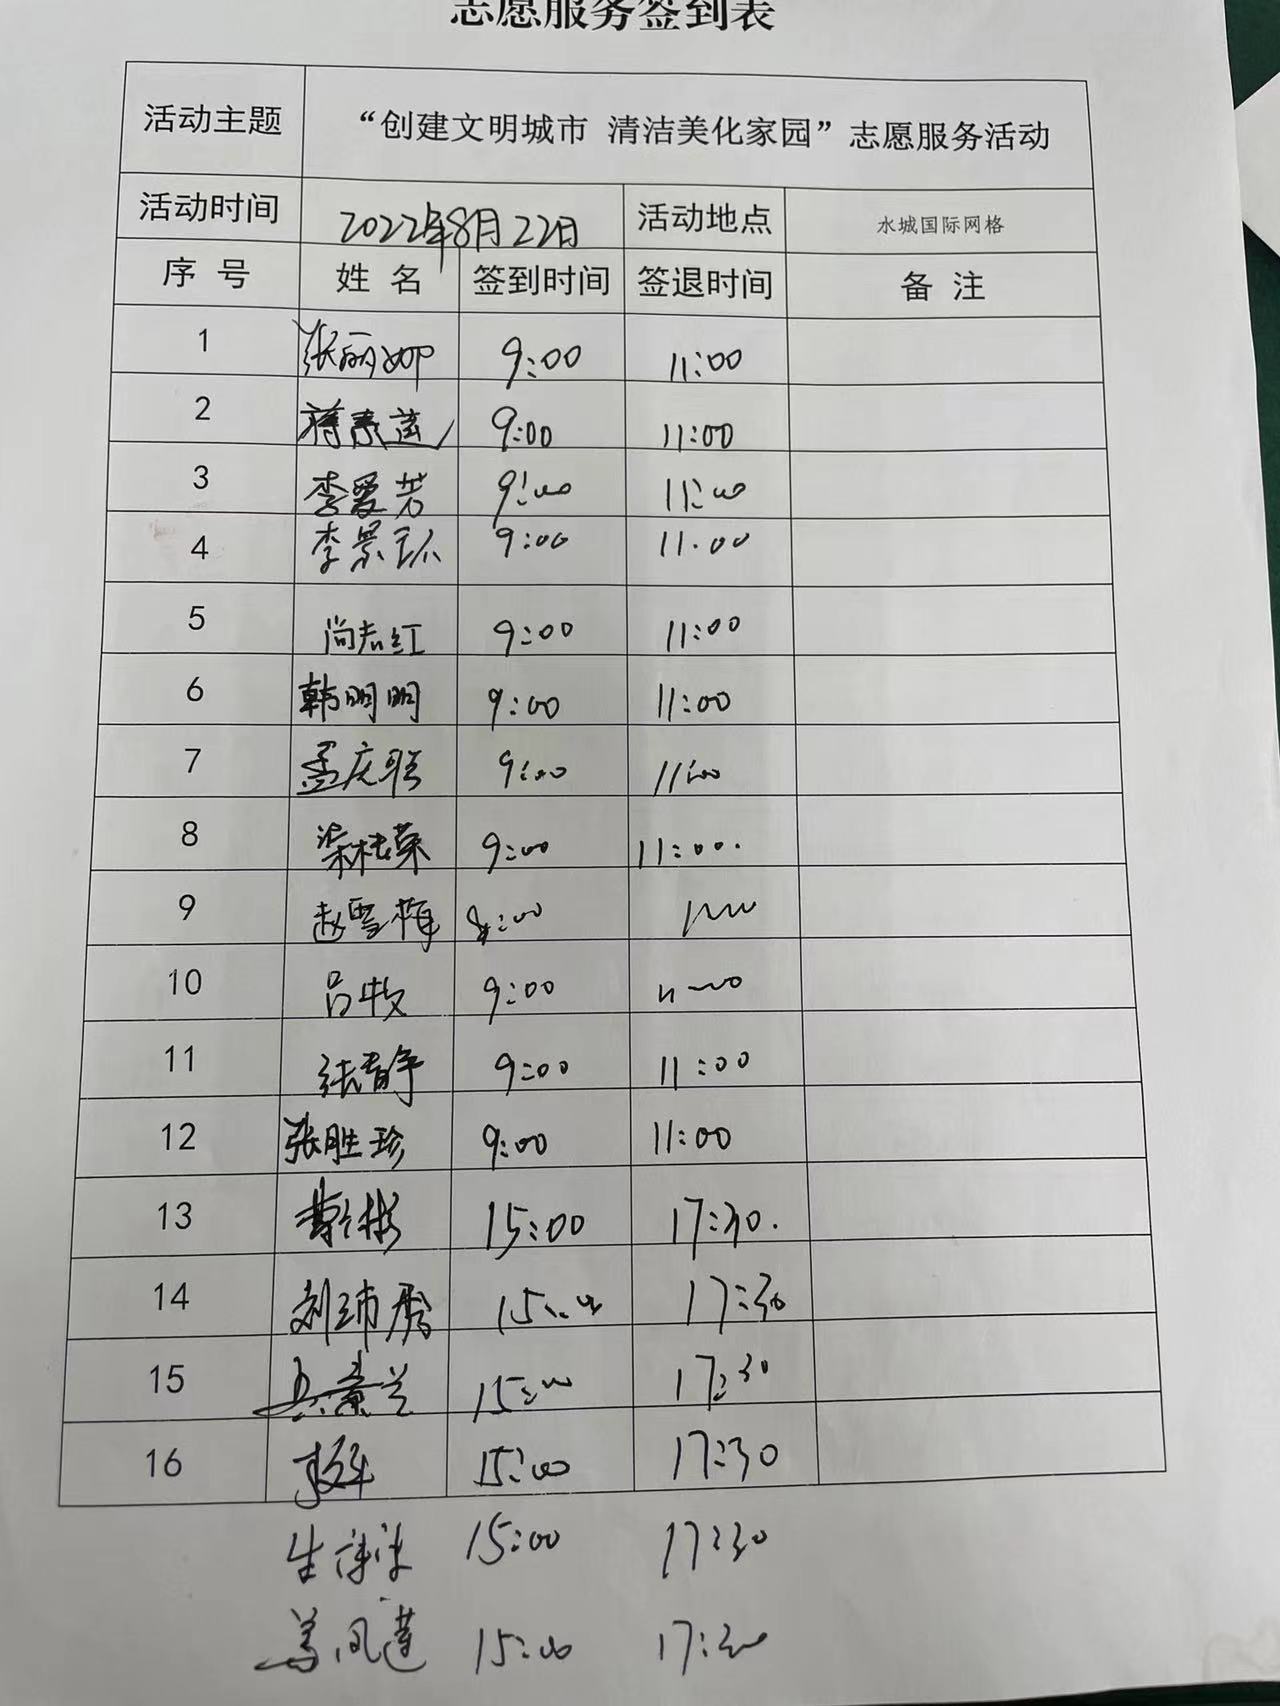 志愿服务签到表
活动主题 “创建文明城市 清洁美化家园”志愿服务活动
活动时间 2022年8月22日 活动地点 水城国际网格
序号 姓名 签到时间 签退时间 备注
1 张丽娜 9:00 11:00
2 蒋素莲 9:00 11:00
3 李爱芳 9:00 11:00
4 李景环 9:00 11:00
5 尚志红 9:00 11:00
6 韩明明 9:00 11:00
7 孟庆联 9:00 11:00
8 梁桂荣 9:00 11:00.
9 赵雪梅 9:00
10 吕牧 9:00 11:00
11 张春静 9:00 11:00
12 张胜珍 9:00 11:00
13 15:00 17:30.
14 刘沛 15:00 17:30
15 15:00 17:30
16 15:00 17:30
15:00 17:30
凤莲 15:00 17:30